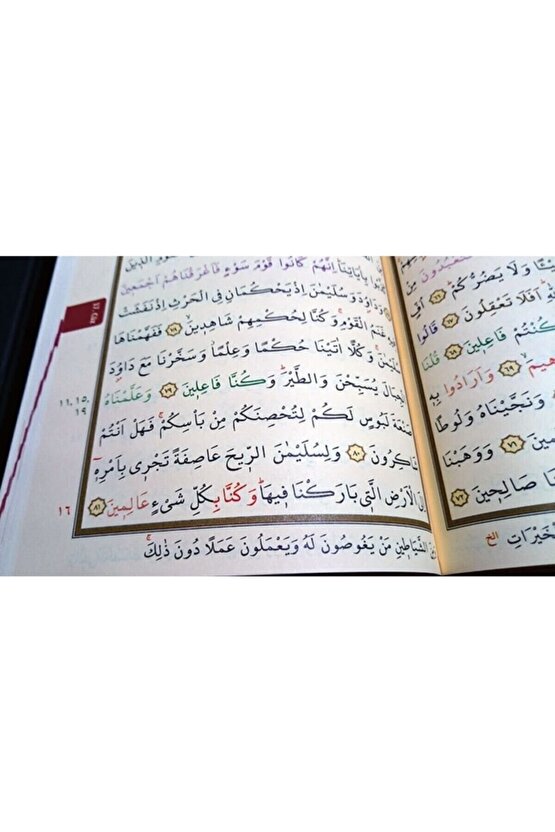 وَلَا يَضُرُّكُمْ ﴿٦٦﴾ اُفٍّ
اَفَلَا تَعْقِلُونَ ﴿٦٧﴾ قَالُوا
كُنْتُمْ فَاعِلِينَ ﴿٦٨﴾ قُلْنَا
﴿٦٩﴾ وَاَرَادُوا بِهِ
وَنَجَّيْنَاهُ وَلُوطًا
﴿٧١﴾ وَوَهَبْنَا
صَالِحِينَ ﴿٧٢﴾
الخ
بِاٰيَاتِنَا اِنَّهُمْ كَانُوا قَوْمَ سَوْءٍ فَاَغْرَقْنَاهُمْ اَجْمَعِينَ
وَدَاوُدَ وَسُلَيْمٰنَ اِذْ يَحْكُمَانِ فِي الْحَرْثِ اِذْ نَفَشَتْ
غَنَمُ الْقَوْمِ وَكُنَّا لِحُكْمِهِمْ شَاهِدِينَ ﴿٧٨﴾ فَفَهَّمْنَاهَا
وَكُلًّا اٰتَيْنَا حُكْمًا وَعِلْمًا وَسَخَّرْنَا مَعَ دَاوُدَ
الْجِبَالَ يُسَبِّحْنَ وَالطَّيْرَ وَكُنَّا فَاعِلِينَ ﴿٧٩﴾ وَعَلَّمْنَاهُ
صَنْعَةَ لَبُوسٍ لَكُمْ لِتُحْصِنَكُمْ مِنْ بَأْسِكُمْ فَهَلْ اَنْتُمْ
شَاكِرُونَ ﴿٨٠﴾ وَلِسُلَيْمٰنَ الرِّيحَ عَاصِفَةً تَجْرِي بِاَمْرِهِ
الْاَرْضِ الَّتِي بَارَكْنَا فِيهَا وَكُنَّا بِكُلِّ شَيْءٍ عَالِمِينَ ﴿٨١﴾
الشَّيَاطِينِ مَنْ يَغُوصُونَ لَهُ وَيَعْمَلُونَ عَمَلًا دُونَ ذٰلِكَ
١١، ١٥،
١٩
١٦